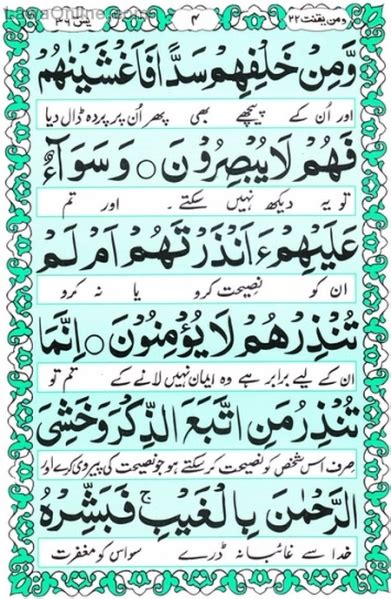 ومن يقنت ٢٢ ٤ يٰسٓ ٣٦
وَّمِنْ خَلْفِهِمْ سَدًّا فَاَغْشَيْنٰهُمْ
اور اُن کے پیچھے بھی پھر اُن پر پردہ ڈال دیا
فَهُمْ لَا يُبْصِرُوْنَ ○ وَسَوَآءٌ
تو یہ دیکھ نہیں سکتے ۔ اور تم
عَلَيْهِمْ ءَاَنْذَرْتَهُمْ اَمْ لَمْ
ان کو نصیحت کرو یا نہ کرو
تُنْذِرْهُمْ لَا يُؤْمِنُوْنَ ○ اِنَّمَا
ان کے لیے برابر ہے وہ ایمان نہیں لانے کے تم تو
تُنْذِرُ مَنِ اتَّبَعَ الذِّكْرَ وَخَشِيَ
صرف اس شخص کو نصیحت کر سکتے ہو جو نصیحت کی پیروی کرے اور
الرَّحْمٰنَ بِالْغَيْبِ ۚ فَبَشِّرْهُ
خدا سے غائبانہ ڈرے سو اس کو مغفرت